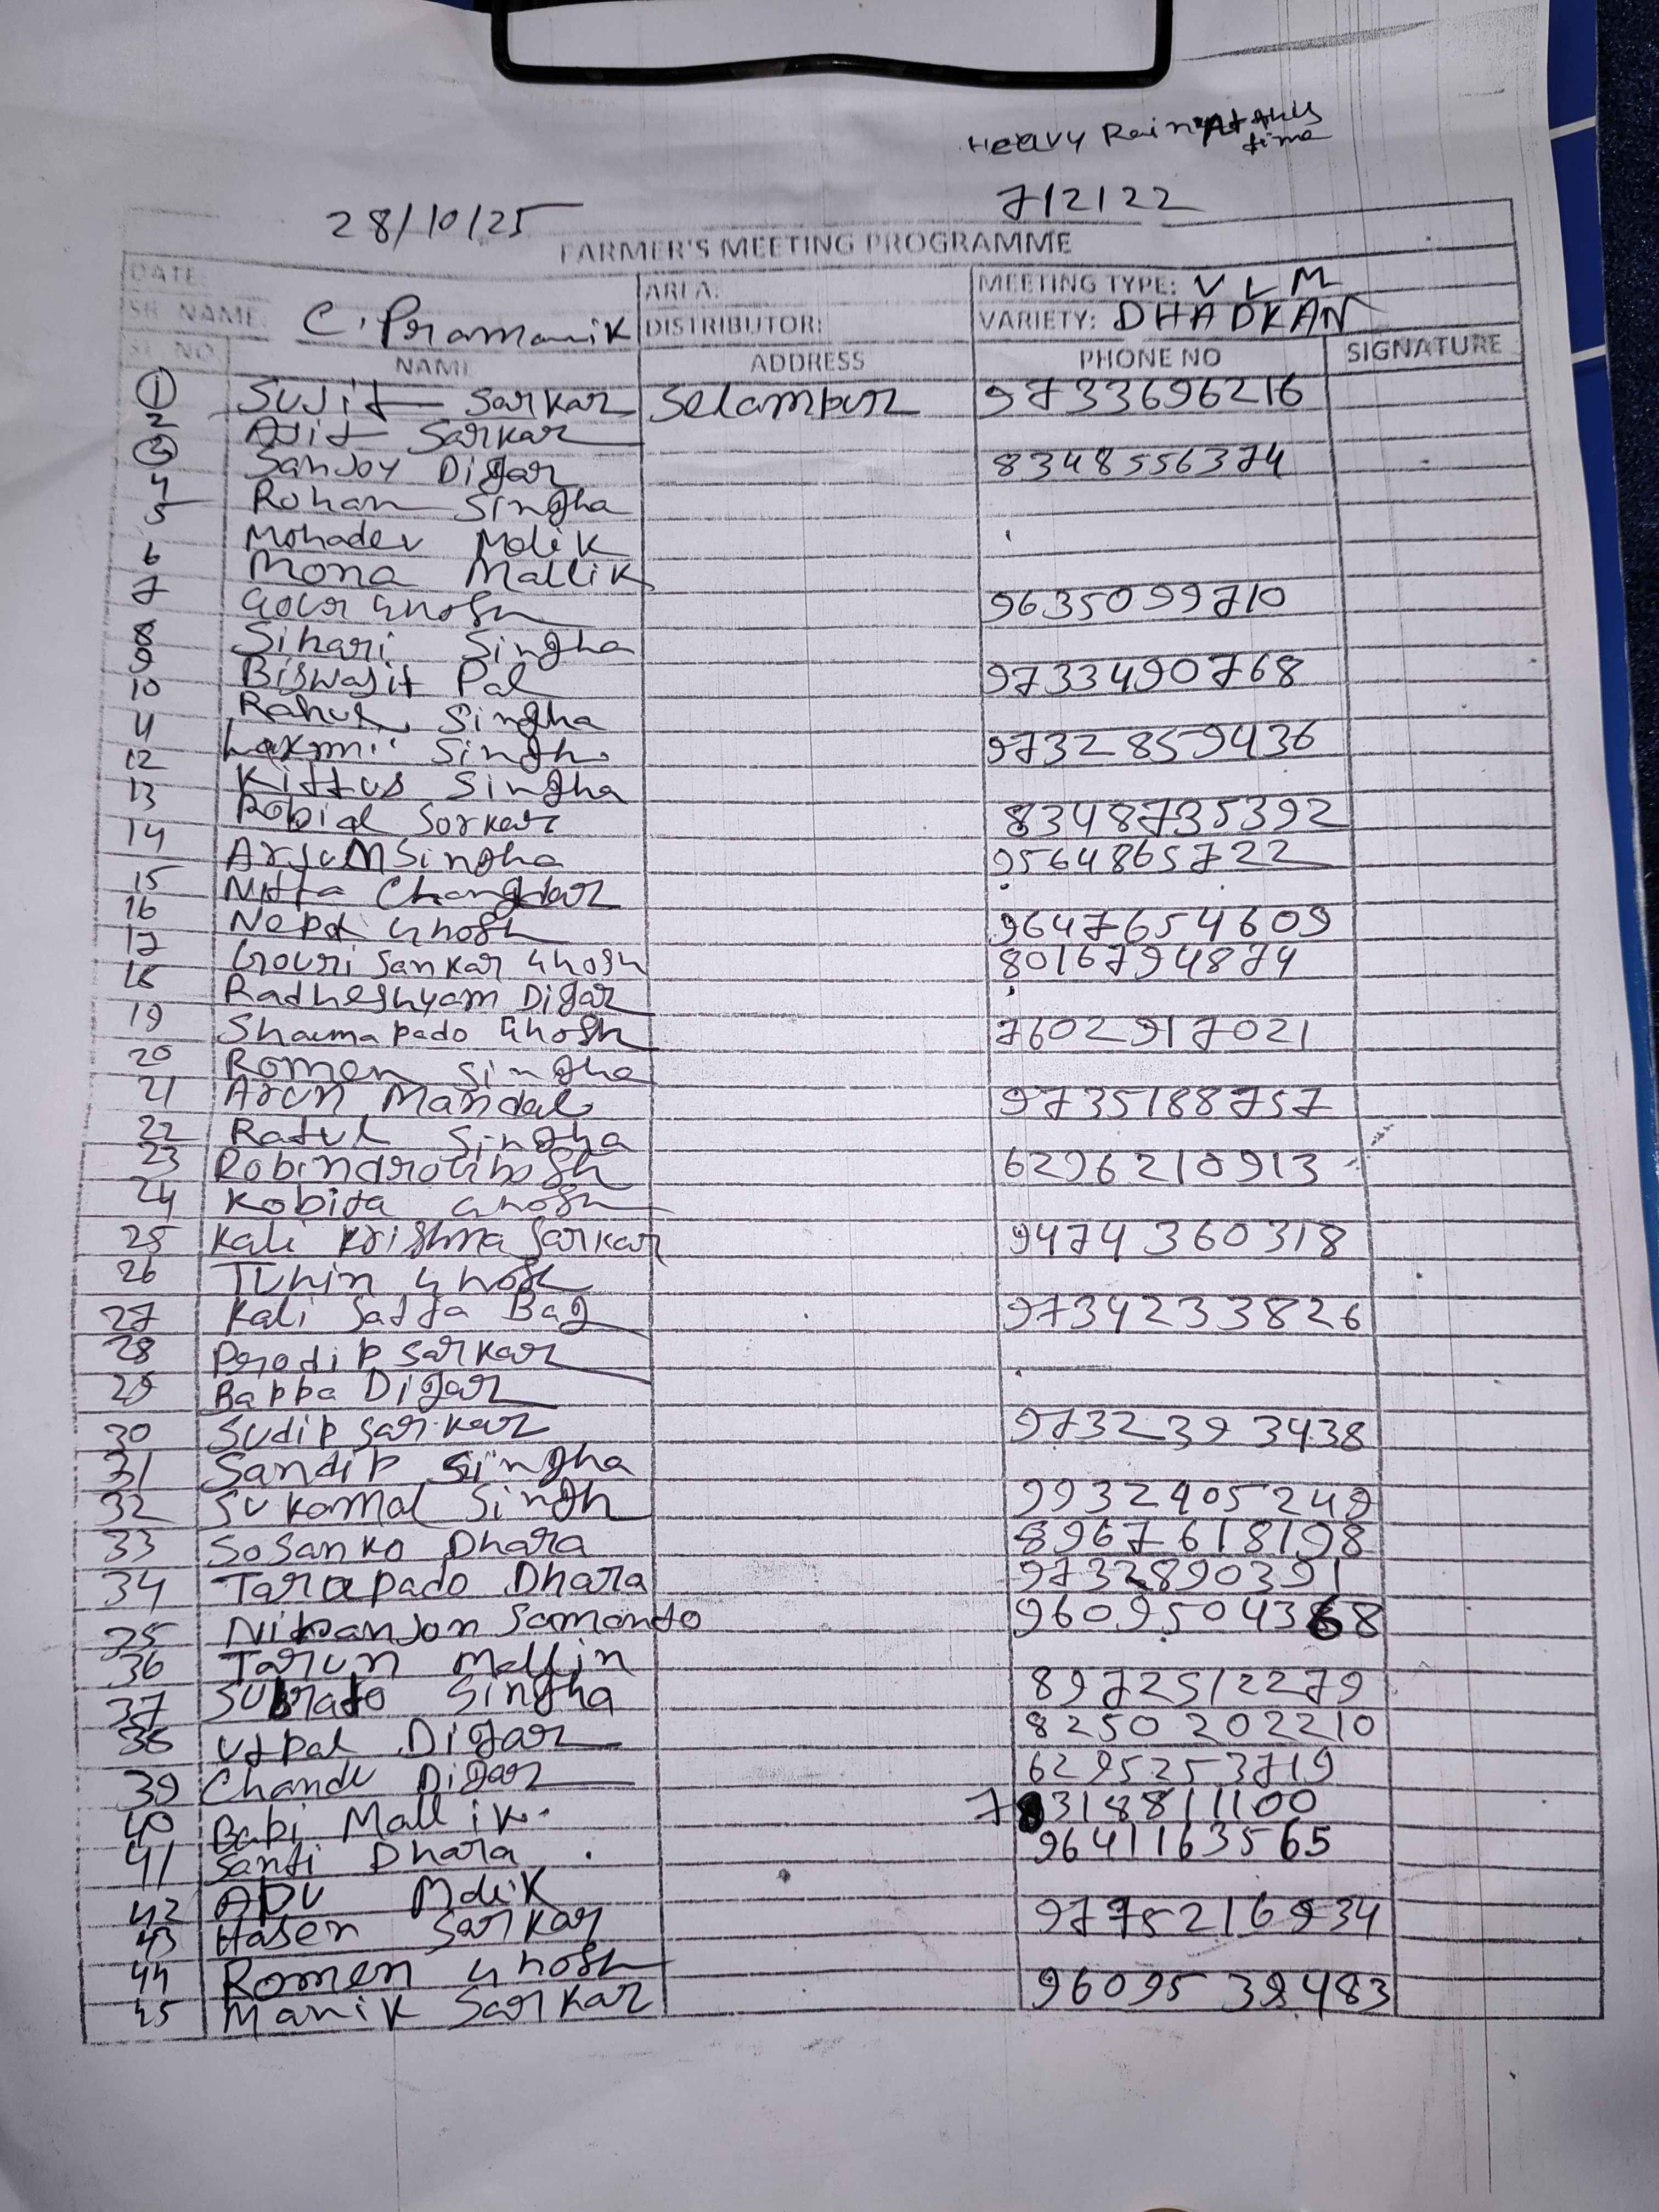 Heavy Rain At this
time
28/10/25 712122
FARMER'S MEETING PROGRAMME
DATE: AREA: MEETING TYPE: VLM
SR. NAME: C. Pramanik DISTRIBUTOR: VARIETY: DHADKAN
SL. NO. NAME ADDRESS PHONE NO SIGNATURE
1 Sujit Sarkar Selampur 9733696216
2 Ajit Sarkar
3 Sanjoy Digar 8348556374
4 Rohan Singha
5 Mohadev Malik
6 Mona Mallik
7 Gour Ghosh 9635099710
8 Sihari Singha
9 Biswajit Pal 9733490768
10 Rahul Singha
11 Laxmii Singha 9732859436
12 Kittus Singha
13 Robial Sorkar 8348735392
14 Arjum Singha 9564865722
15 Nitta Changdar
16 Nepal Ghosh 9647654609
17 Gouri Sankar Ghosh 8016794874
18 Radheshyam Digar
19 Shaumapado Ghosh 7602917021
20 Romen Singha
21 Arun Mandal 9735188757
22 Ratul Singha
23 Robindro Ghosh 6296210913
24 Kobita Ghosh
25 Kali Krishna Sarkar 9474360318
26 Tuhin Ghosh
27 Kali Satta Bag 9734233826
28 Prodip Sarkar
29 Bappa Digar
30 Sudip Sarkar 9732393438
31 Sandip Singha
32 Sukomal Singh 9932405249
33 Sosanko Dhara 8967618198
34 Tarapado Dhara 9732890391
35 Niranjon Samonto 9609504368
36 Tarun Mallin
37 Subrato Singha 8972512279
38 Utpal Digar 8250202210
39 Chandu Digar 6295253719
40 Babi Mallik 7318811100
41 Santi Dhara 9641163565
42 Apu Malik
43 Hasen Sarkar 9775216934
44 Romen Ghosh
45 Manik Sarkar 9609539483